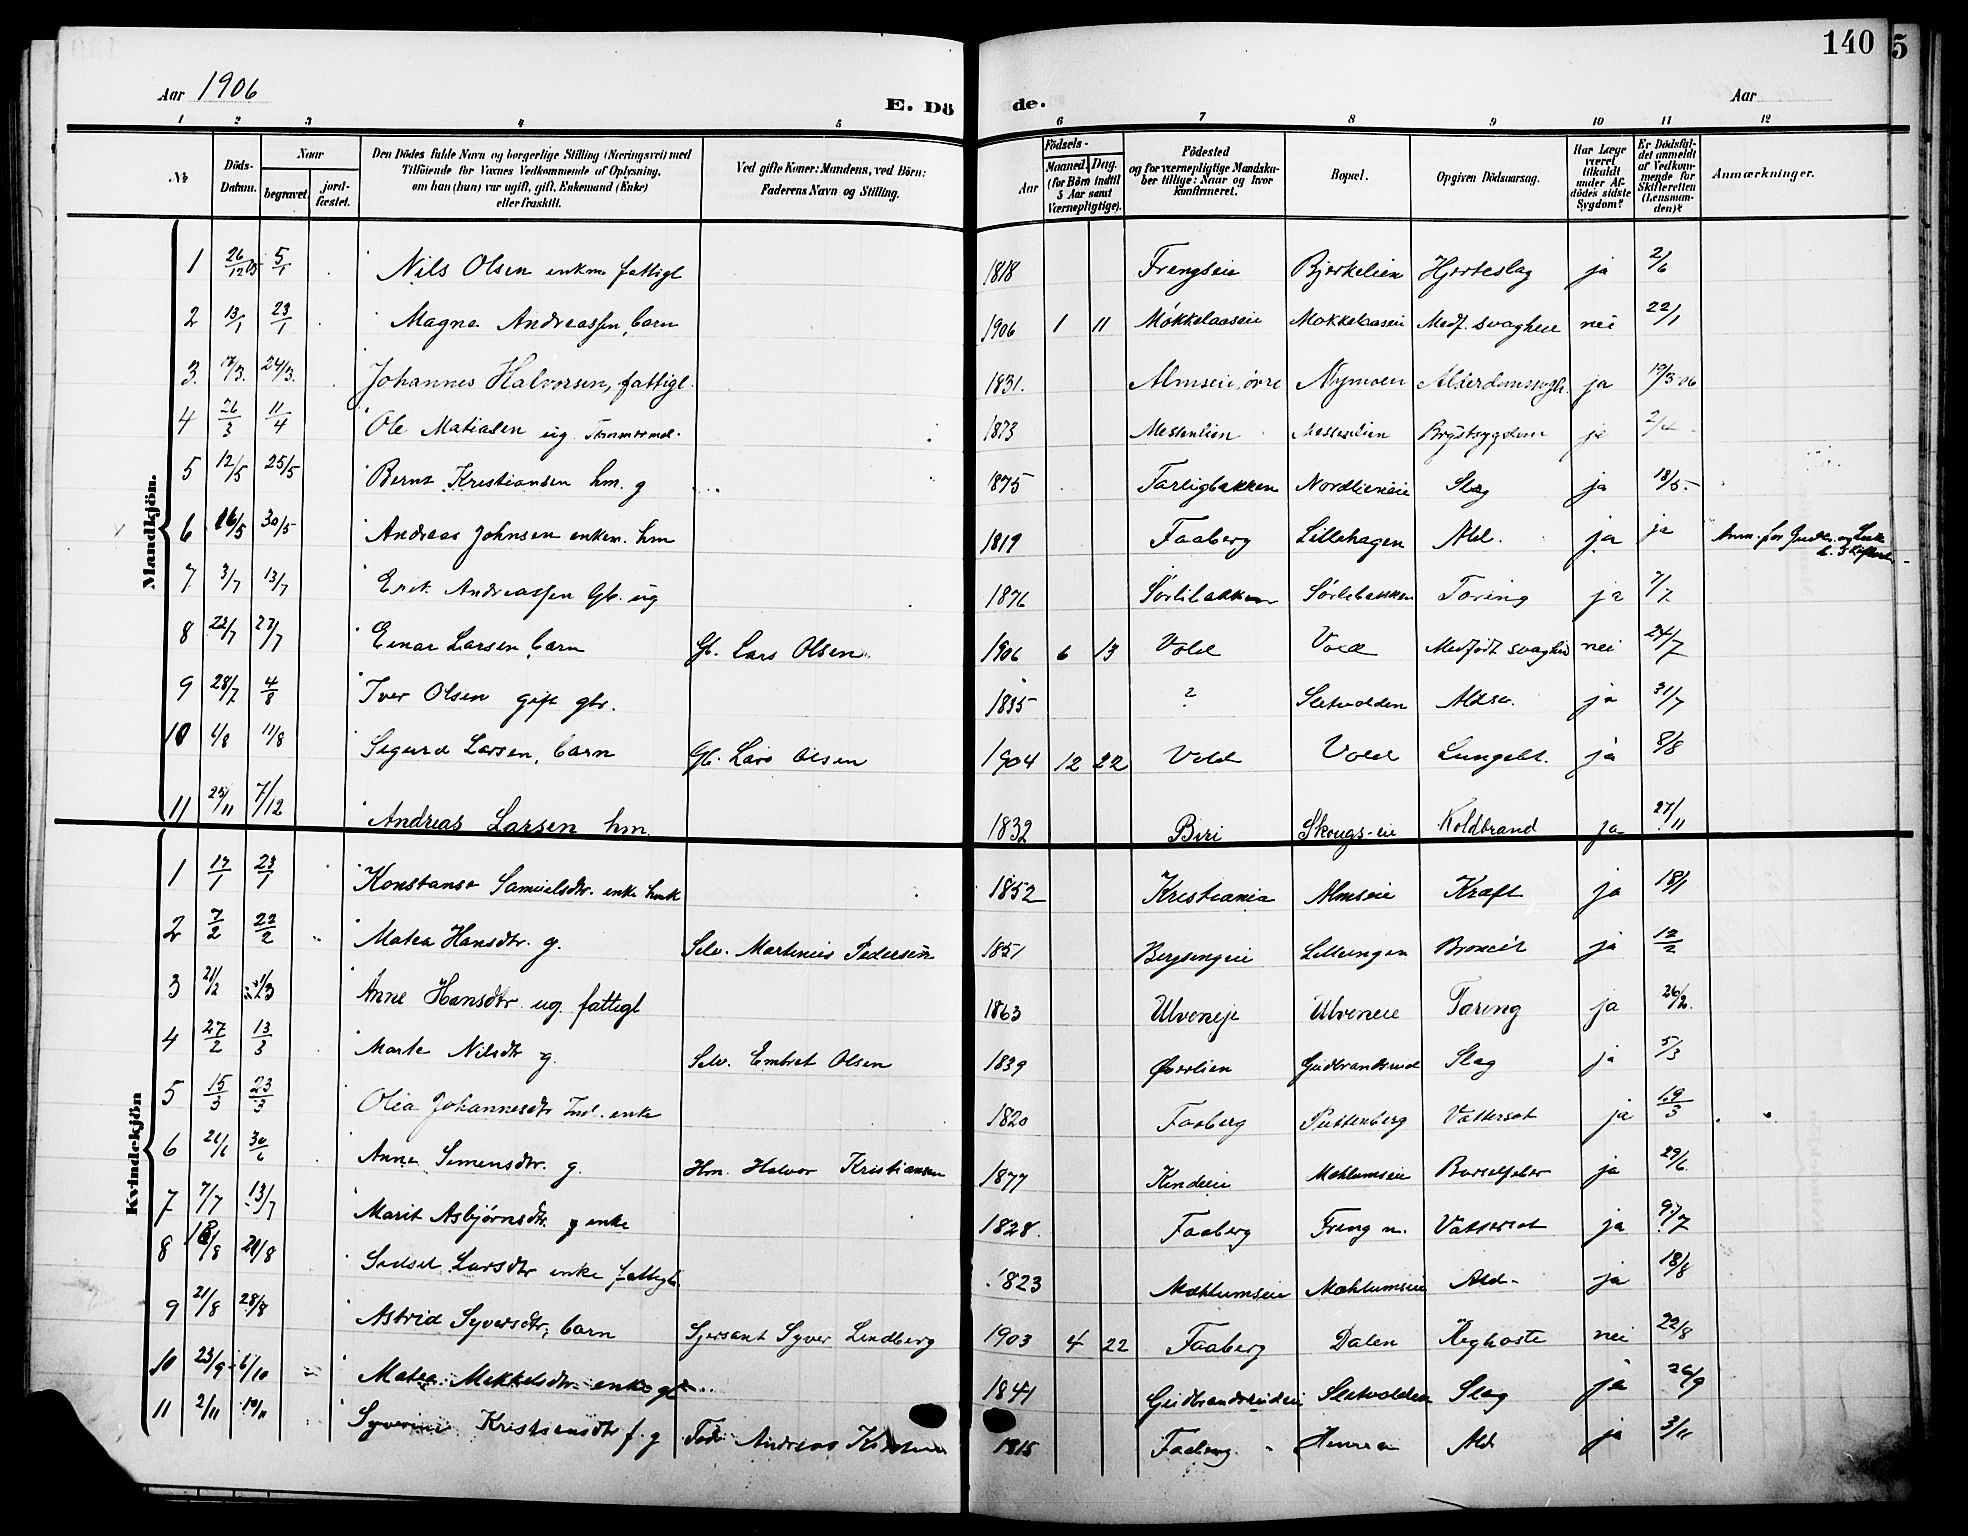 140
5
Aar 1906
E. Dö
de.
Aar
1 2 3 4 5 6 7 8 9 10 11 12
№
Döds-Datum.
Naar
begravet.
jord-fæstet.
Den Dödes fulde Navn og borgerlige Stilling (Næringsvei) med Tilföiende for Voxnes Vedkommende af Oplysning, om han (hun) var ugift, gift, Enkemand (Enke) eller fraskilt.
Ved gifte Koner: Mandens, ved Börn: Faderens Navn og Stilling.
Födsels-
Aar
Maaned.
Dag.
(for Börn indtil 5 Aar samt Værnepligtige).
Födested og for værnepligtige Mandskaber tillige: Naar og hvor konfirmeret.
Bopæl.
Opgiven Dödsaarsag.
Har Læge været tilkaldt under Afdödes sidste Sygdom?
Er Dödsfaldet anmeldt af Vedkommende for Skifteretten (Lensmanden)?
Anmærkninger.
Mandkjön.
1 26/12 05 5/1 Nils Olsen enkm fattigl 1818 Frengseie Bjerkelien Hjerteslag ja 2/6
2 13/1 23/1 Magne Andreassen, barn 1906 1 11 Møkkelaaseie Møkkelaaseie Medf. svaghed nei 22/1
3. 17/3. 24/3. Johannes Halvorsen, fattigl. 1831. Almseie, övre Nymoen ja 19/3 06
4 26/3 11/4 Ole Matiasen ug. 1873 Messenlien Messenlien Brystsygdom ja 2/4
5 12/5 25/5 Bernt Kristiansen hm. g 1875 Nordlieneie Slag ja 18/5
6 16/5 30/5 Andreas Johnsen enkem. hm 1819 Faaberg Lillehagen Ald. ja ja
7 3/7 13/7 Andreassen Gb. ug 1876 Sørlibakken Sørlibakken Tæring ja 7/7
8 22/7 27/7 Einar Larsen, barn Gb. Lars Olsen 1906 6 13 Vold Vold Medfödt svaghed nei 24/7
9 28/7 4/8 Iver Olsen gift gbr. 1835 ? Sletvolden Aldsv. ja 31/7
10 6/8 11/8 Sigurd Larsen, barn Gb. Lars Olsen 1904 12 22 Vold Vold Lungebt. ja 8/8
11 25/11 7/12 Andreas Larsen hm. 1832 Biri Skougs-eie Koldbrand ja 27/11
Kvindekjön
1 17/1 23/1 Konstanse Samuelsdtr. enke 1852 Kristiania Almseie Kræft ja 18/1
2 7/2 22/2 Matea Hansdtr. g. Selv. Martinius Pedersen 1851 Bergsengeie Lillengen ja 12/2
3 21/2 Anne Hansdtr ug. fattigl 1863 Ulveneje Ulveneie Tæring ja 26/2.
4 27/2 13/3 Marte Nilsdtr g. Selv. Embret Olsen 1839 Øverlien Gudbrandsrud Slag ja 5/3
5 15/3 23/3 Olea Johannesdtr Ind. enke 1820 Faaberg Puttenberg Vattersot ja 19/3
6 21/6 30/6 Anne Simensdtr. g. Hm. Halvor Kristiansen 1877 Mæhlumseie Barselfeber ja 29/6.
7 7/7 13/7 Marit Asbjørnsdtr. enke 1828. Faaberg Freng n. Vattersot ja 9/7
8 18/8 21/8 Sidsel Larsdtr enke fattigl. 1823 Mæhlumseie Mæhlumseie Ald. ja 18/8
9 21/8 28/8 Astrid Syversdtr, barn Sjersant Syver Lindberg 1903 4 22 Faaberg Dalen Kighoste nei 22/8
10 23/9 6/10 Matea Mikkelsdtr. enke 1841 Gudbrandsrudeie Sletvolden Slag ja 26/9
11 2/11 10/11 Syverine Kristiansdtr f. g Fad. Andreas 1815 Faaberg. Ald ja 3/11